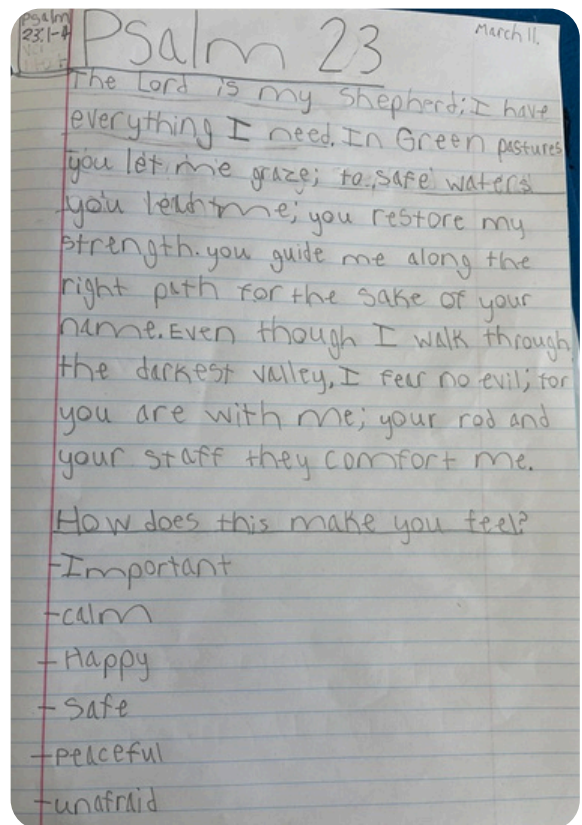 Psalm
23:1-4
Psalm 23
March 11,
The Lord is my Shepherd; I have
everything I need. In Green pastures
you let me graze; to safe waters
you me; you restore my
strength. you guide me along the
right path for the sake of your
name. Even though I walk through
the darkest valley, I fear no evil; for
you are with me; your rod and
your staff they comfort me.
How does this make you feel?
-Important
-calm
-Happy
-safe
-peaceful
-unafraid